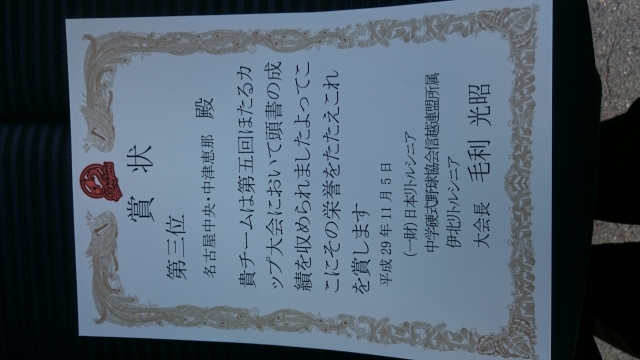 賞状
第三位
名古屋中央・中津恵那 殿
貴チームは第五回ほたるカ
ップ大会において頭書の成
績を収められましたよってこ
こにその栄誉をたたえこれ
を賞します
平成29年11月5日
(一財)日本リトルシニア
中学硬式野球協会信越連盟所属
伊北リトルシニア
大会長 毛利 光昭